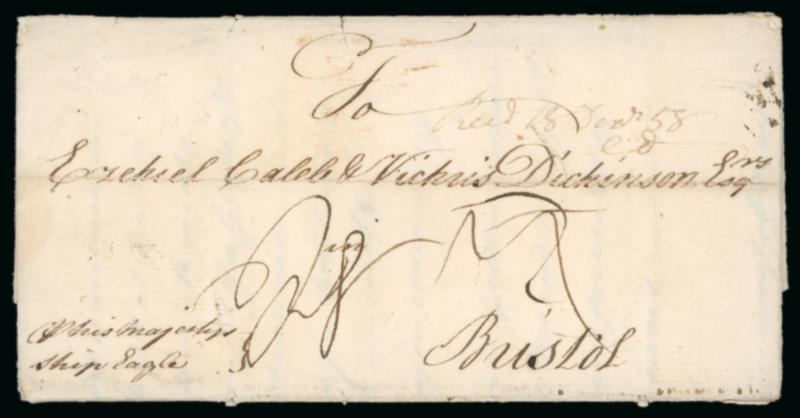 To
Recd 18 Decr 58
Ezekiel Caleb & Vickris Dickinson Esqrs
in
Bristol
P his Majestys
ship Eagle